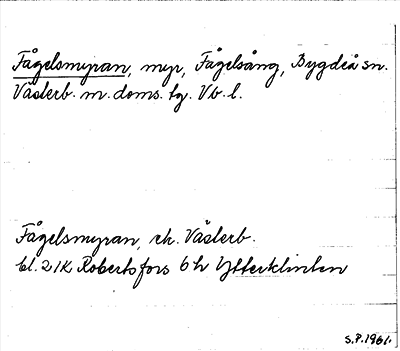 Fågelsmyran, myr, Fågelsång, Bygdeå sn.
Västerb. m. doms. tg. Vb. l.
Fågelsmyran, ek. Västerb.
bl. 21K Robertsfors 6 h Ytterklinten
S.P. 1961.